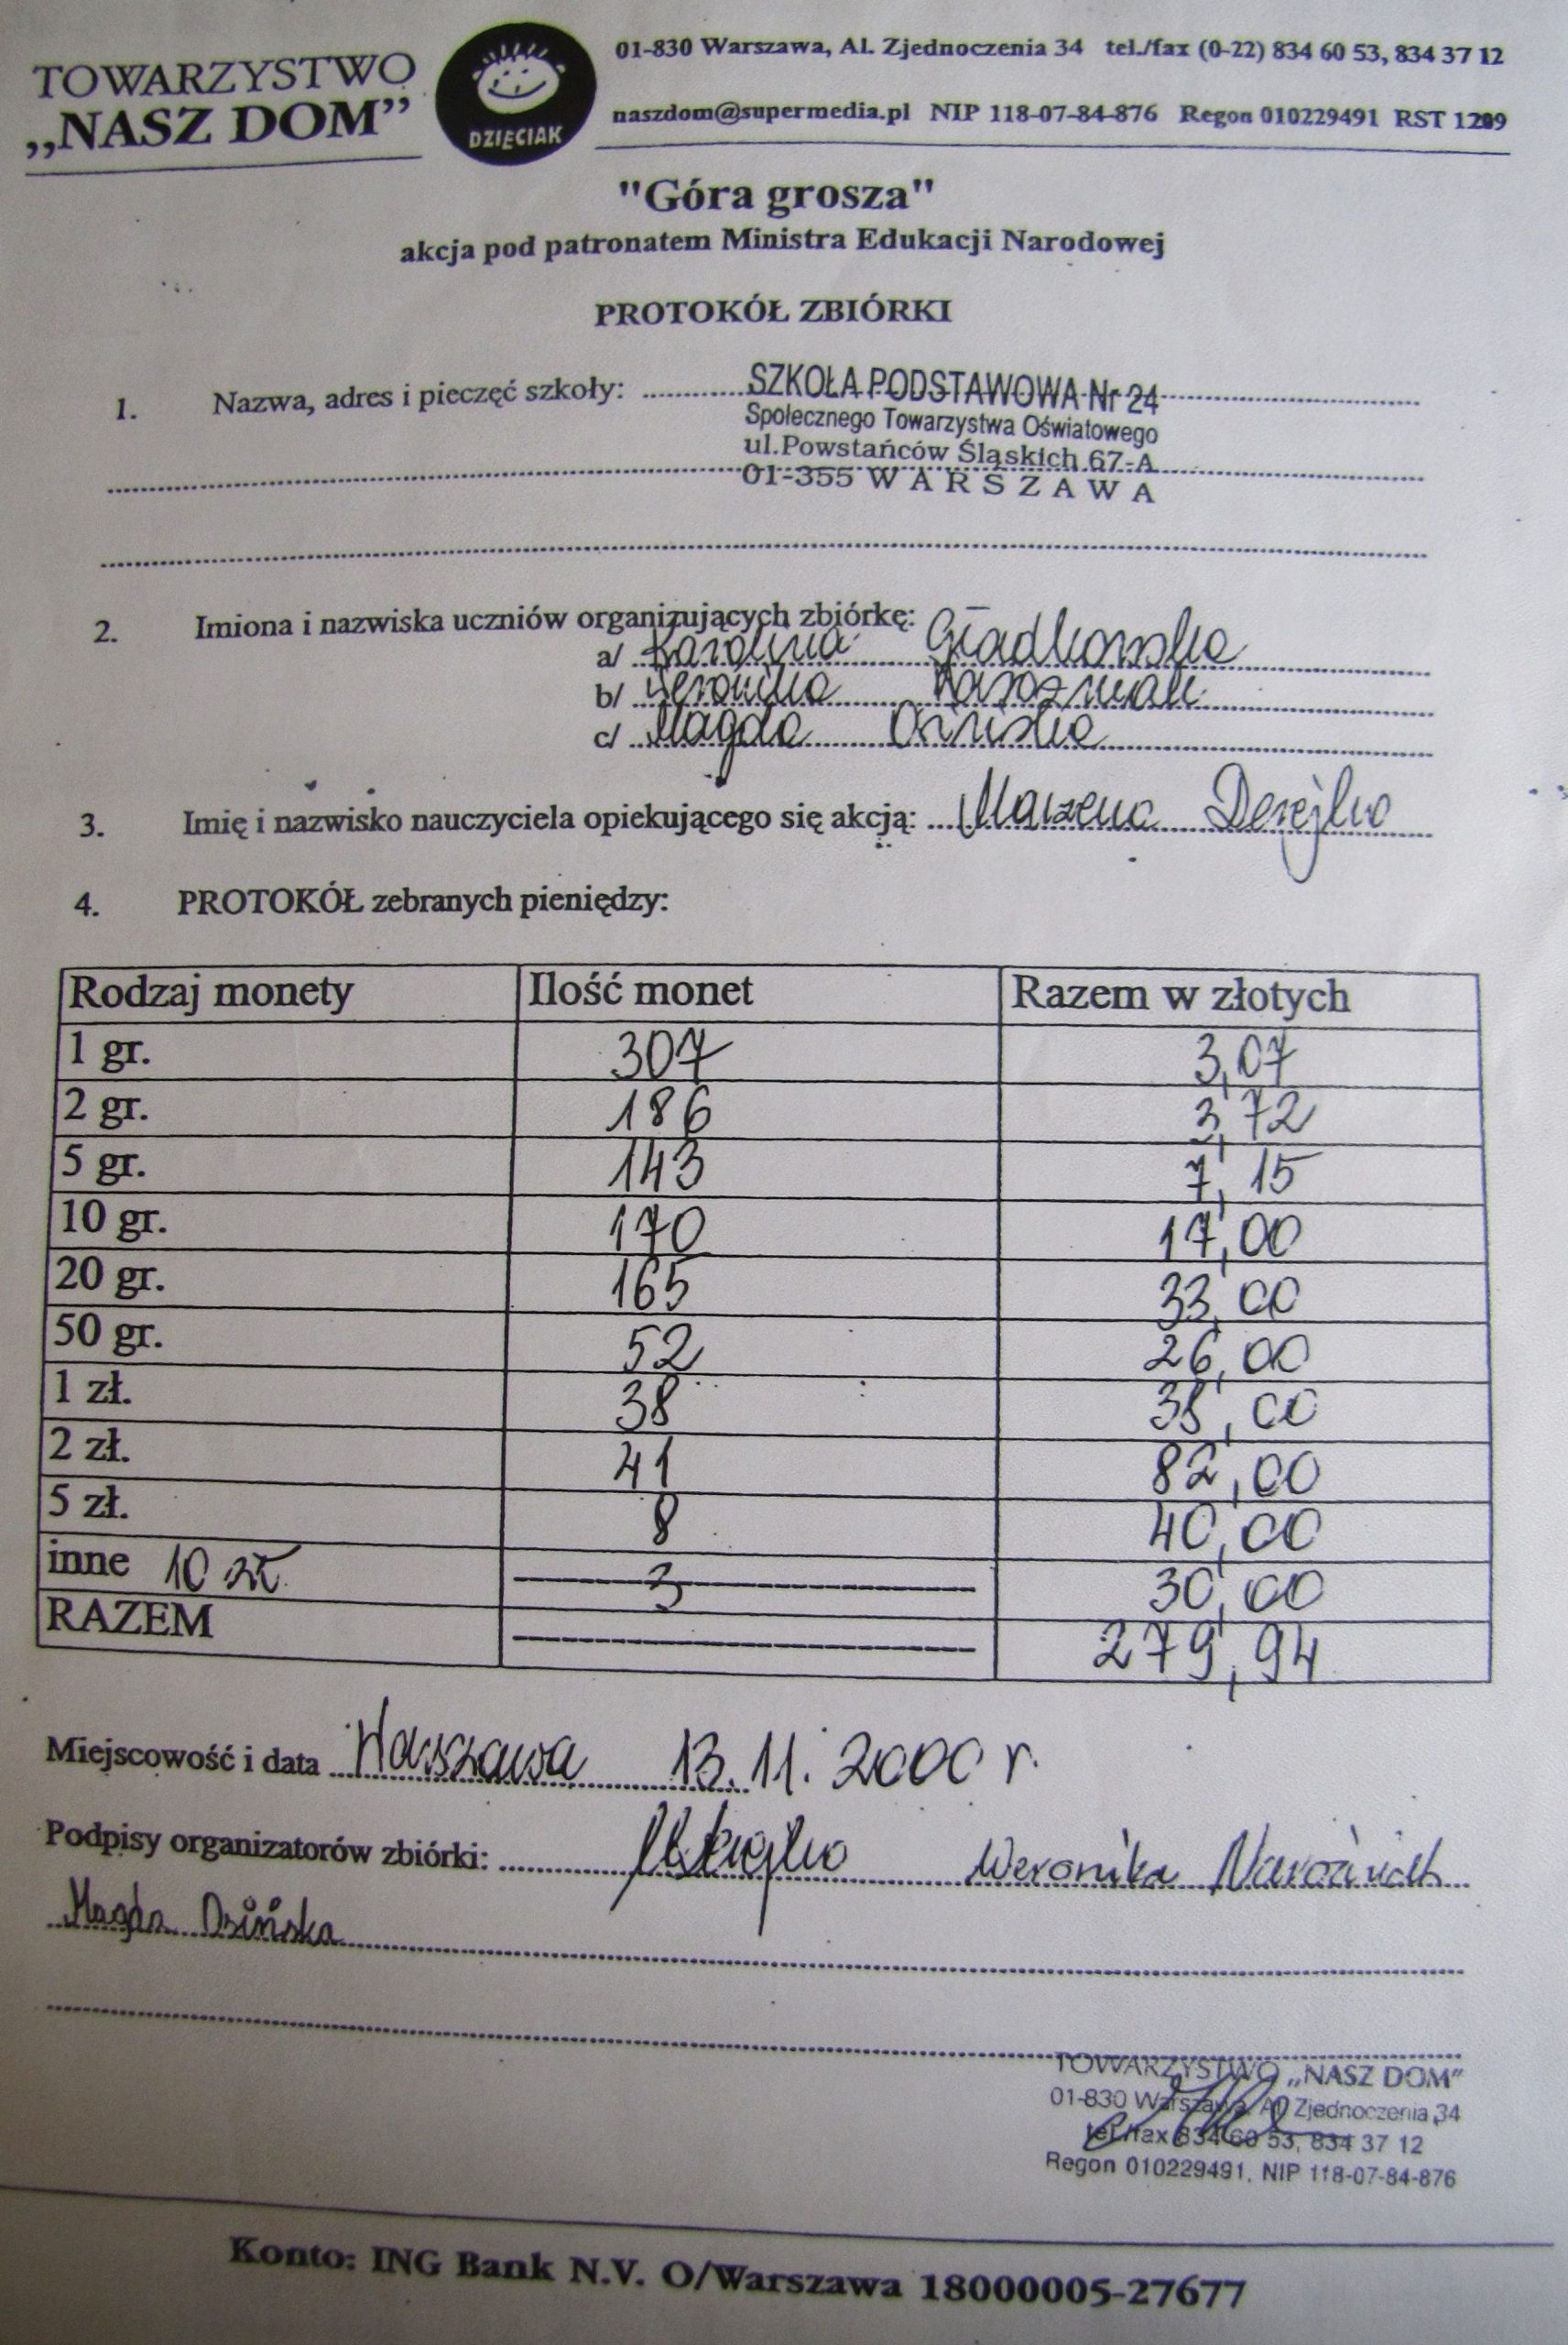 TOWARZYSTWO
„NASZ DOM”
DZIĘCIAK
01-830 Warszawa, Al. Zjednoczenia 34 tel./fax (0-22) 834 60 53, 834 37 12
naszdom@supermedia.pl NIP 118-07-84-876 Regon 010229491 RST 1209
"Góra grosza"
akcja pod patronatem Ministra Edukacji Narodowej
PROTOKÓŁ ZBIÓRKI
1. Nazwa, adres i pieczęć szkoły: SZKOŁA PODSTAWOWA Nr 24
Społecznego Towarzystwa Oświatowego
ul. Powstańców Śląskich 67-A
01-355 WARSZAWA
2. Imiona i nazwiska uczniów organizujących zbiórkę:
a/ Karolina Gładkowska
b/ Weronika
c/ Magda Osińska
3. Imię i nazwisko nauczyciela opiekującego się akcją: Marzena
4. PROTOKÓŁ zebranych pieniędzy:
Rodzaj monety Ilość monet Razem w złotych
1 gr. 307 3,07
2 gr. 186 3,72
5 gr. 143 7,15
10 gr. 170 17,00
20 gr. 165 33,00
50 gr. 52 26,00
1 zł. 38 38,00
2 zł. 41 82,00
5 zł. 8 40,00
inne 10 zł 3 30,00
RAZEM 279,94
Miejscowość i data Warszawa 13.11.2000 r.
Podpisy organizatorów zbiórki: Weronika
Magda Osińska
TOWARZYSTWO „NASZ DOM”
01-830 Warszawa, Al. Zjednoczenia 34
tel./fax 834 60 53, 834 37 12
Regon 010229491, NIP 118-07-84-876
Konto: ING Bank N.V. O/Warszawa 18000005-27677